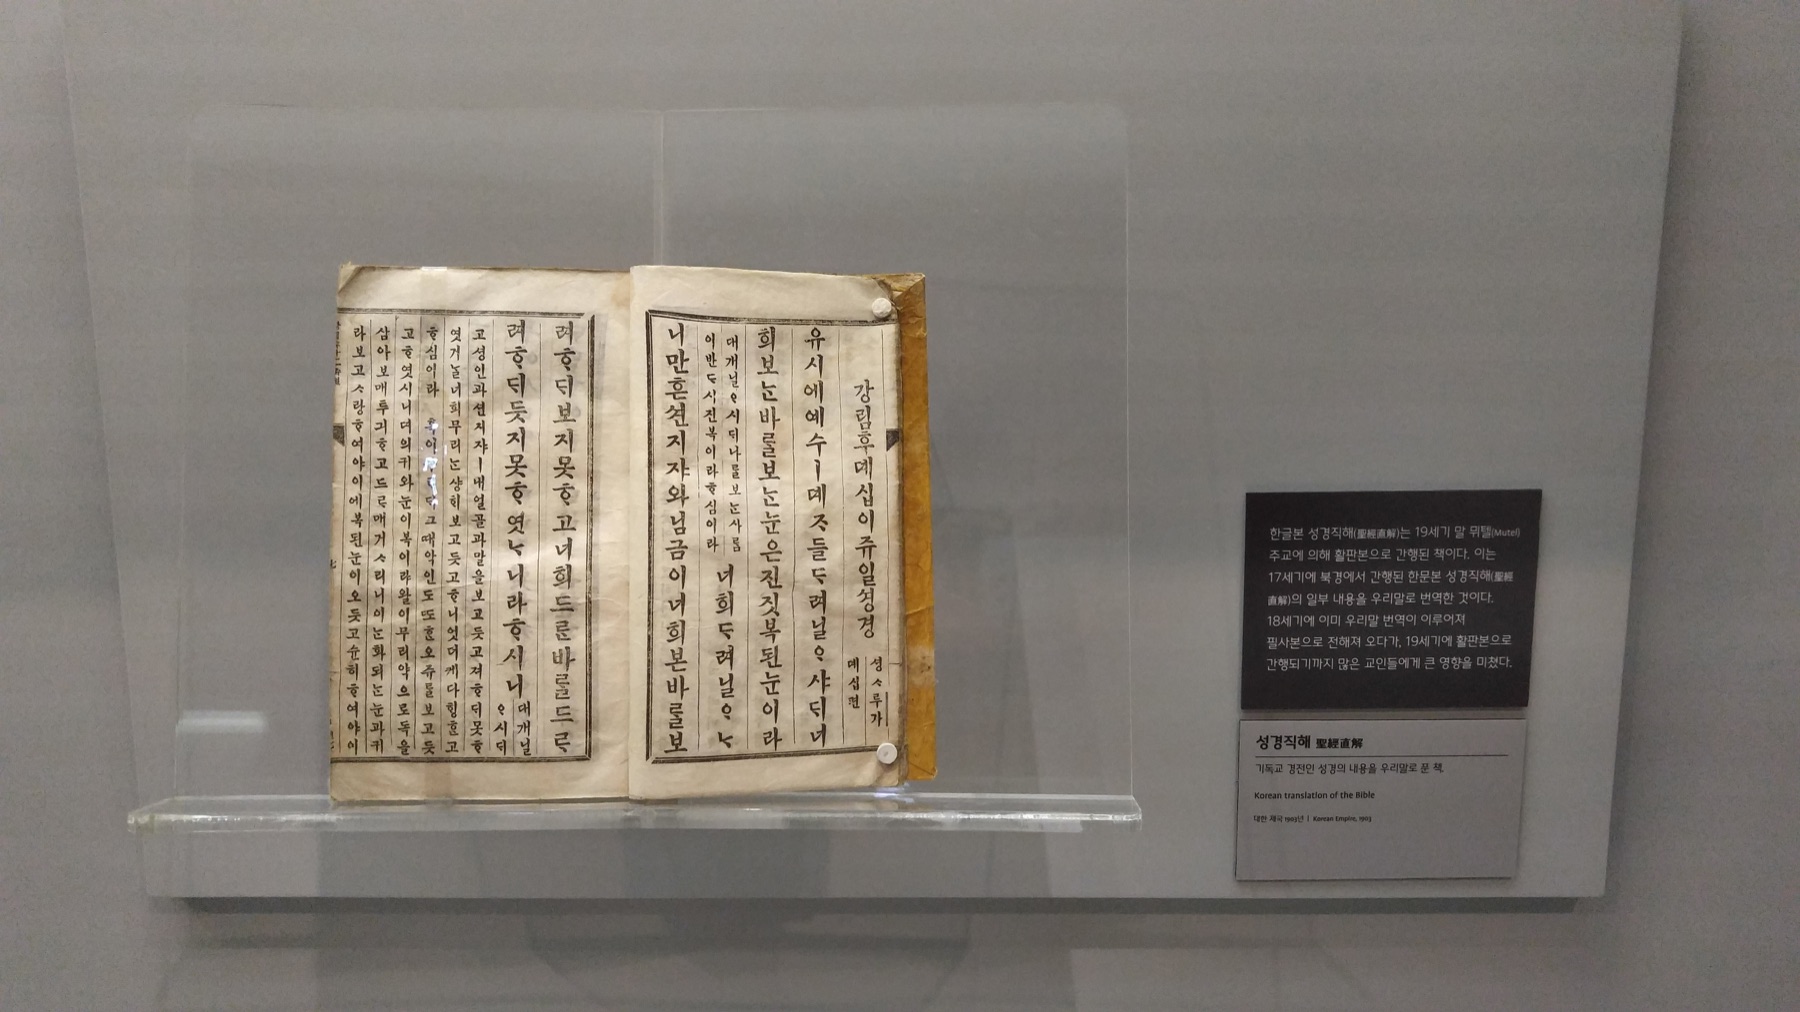 강림후뎨십이쥬일셩경 셩ᄉᆞ루가
뎨십편
유시에예수ㅣ뎨ᄌᆞ들ᄃᆞ려닐ᄋᆞ샤ᄃᆡ너
희보ᄂᆞᆫ바를보ᄂᆞᆫ눈은진짓복된눈이라
대개닐ᄋᆞ시ᄃᆡ나를보ᄂᆞᆫ사ᄅᆞᆷ
이반ᄃᆞ시진복이라ᄒᆞ심이라
너희ᄃᆞ려닐ᄋᆞᄂᆞ
니만흔션지쟈와님금이너희본바를보
려ᄒᆞᄃᆡ보지못ᄒᆞ고너희드른바를드ᄅᆞ
려ᄒᆞᄃᆡ듯지못ᄒᆞ엿ᄂᆞ니라ᄒᆞ시니
대개닐
ᄋᆞ시ᄃᆡ
고셩인과션지쟈ㅣ내얼골과말을보고듯고져ᄒᆞᄃᆡ못ᄒᆞ
엿거ᄂᆞᆯ너희무리ᄂᆞᆫ샹ᄒᆡ보고듯고ᄒᆞ니엇더케다ᄒᆡᆼᄒᆞ고
ᄒᆞ심이라 그ᄯᅢ악인도ᄯᅩᄒᆞᆫ오쥬를보고듯
고ᄒᆞ엿시니뎌의귀와눈이복이라왈이무리약으로독을
삼아보매투긔ᄒᆞ고드ᄅᆞ매거ᄉᆞ리니이ᄂᆞᆫ화되ᄂᆞᆫ눈과귀
라보고ᄉᆞ랑ᄒᆞ여야이에복된눈이오듯고슌히ᄒᆞ여야이
한글본 성경직해(聖經直解)는 19세기 말 뮈텔(Mutel)
주교에 의해 활판본으로 간행된 책이다. 이는
17세기에 북경에서 간행된 한문본 성경직해(聖經
直解)의 일부 내용을 우리말로 번역한 것이다.
18세기에 이미 우리말 번역이 이루어져
필사본으로 전해져 오다가, 19세기에 활판본으로
간행되기까지 많은 교인들에게 큰 영향을 미쳤다.
성경직해 聖經直解
기독교 경전인 성경의 내용을 우리말로 푼 책.
Korean translation of the Bible
대한 제국 1903년 | Korean Empire, 1903